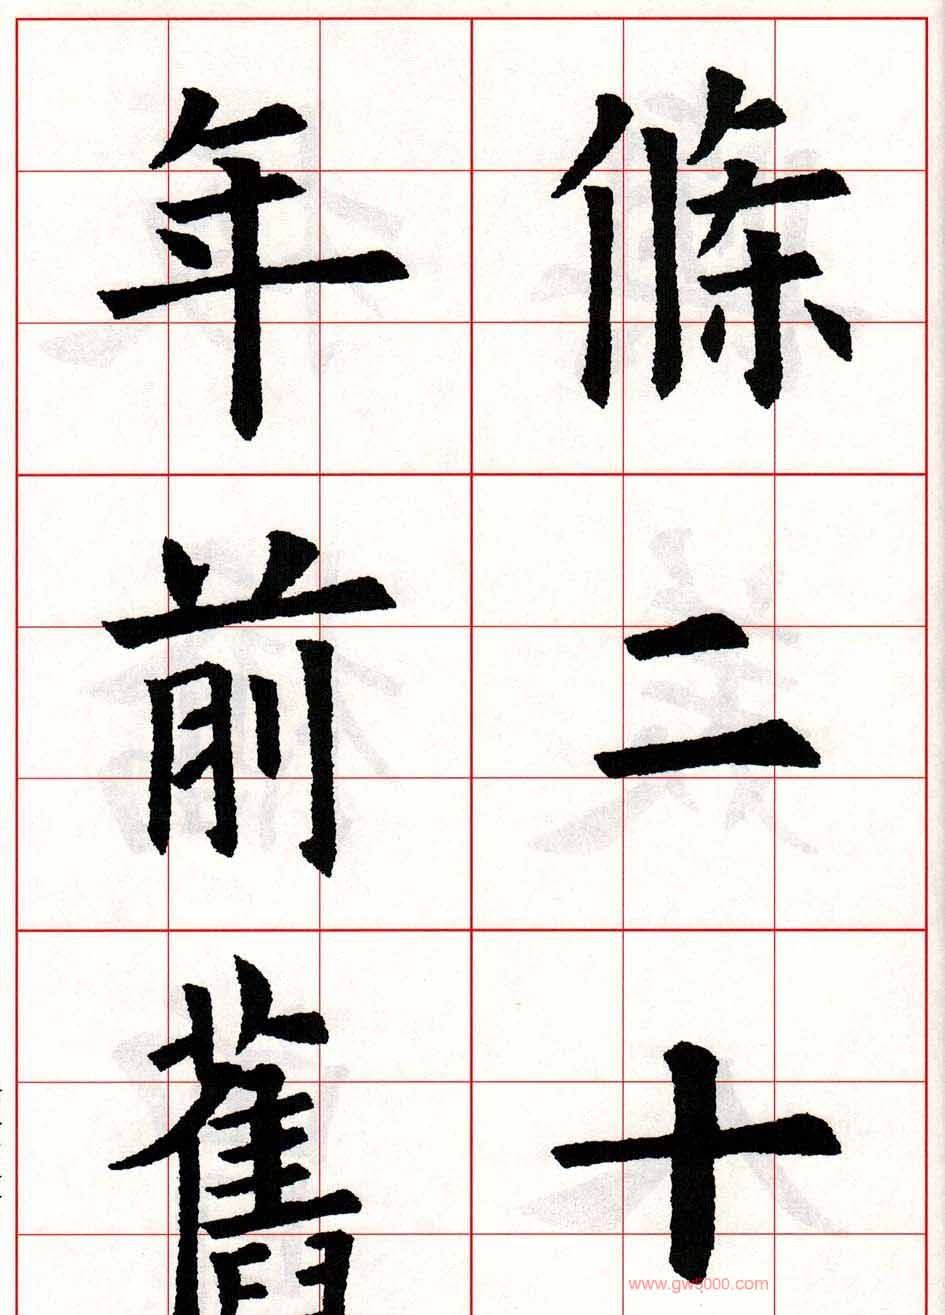 條二十
年前舊
www.gw5000.com